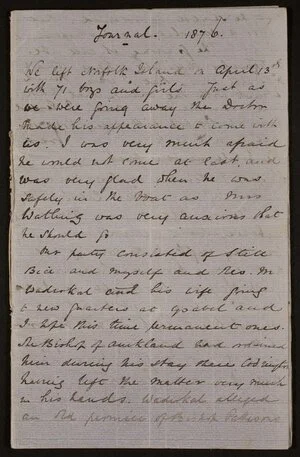 Journal. 1876.
We left Norfolk Island on April 13th
with 71 boys and girls just as
we were going away the Doctor
made his appearance to come with
us. I was very much afraid
he would not come at last, and
was very glad when he was
safely in the boat as Mrs
was very anxious that
he should go
Our party consisted of Still
Bice and myself and Rev. M
Wadrokal and his wife going
to new quarters at Ysabel and
I hope this time permanent ones.
The Bishop of Auckland had ordained
him during his stay there Codrington
having left the matter very much
in his hands. Wadrokal alleged
an old promise of Bishop Patteson's